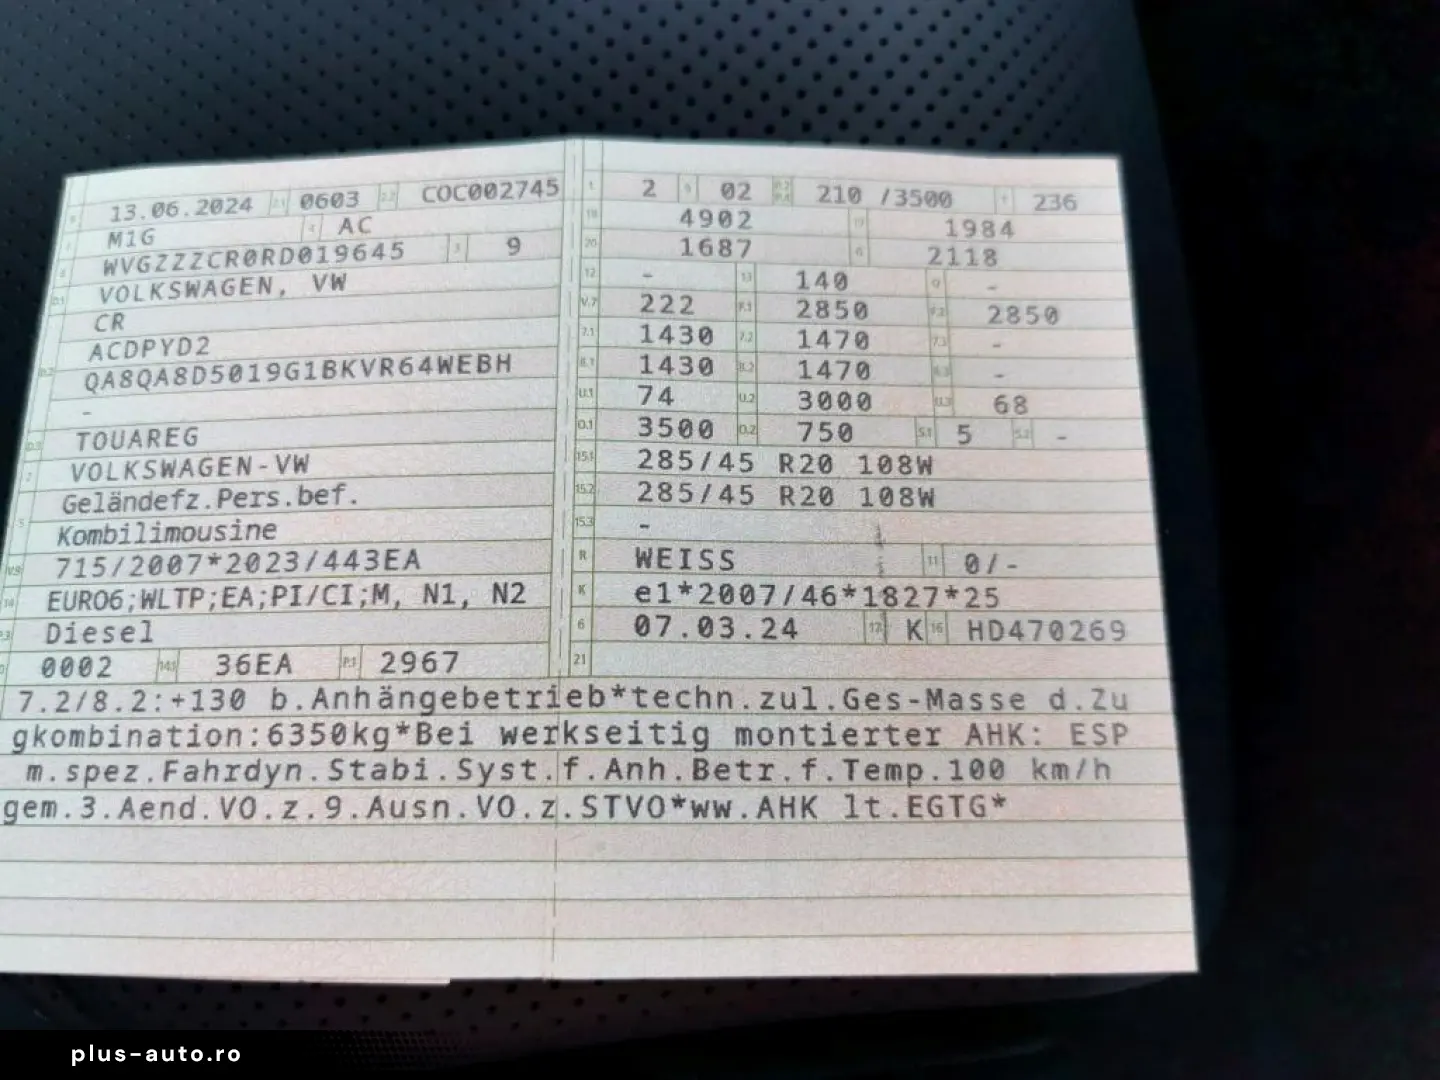 13.06.2024 2.1 0603 2.2 COC002745
M1G 4 AC
WVGZZZCR0RD019645 3 9
VOLKSWAGEN, VW
CR
ACDPYD2
QA8QA8D5019G1BKVR64WEBH
-
TOUAREG
VOLKSWAGEN-VW
Geländefz.Pers.bef.
Kombilimousine
715/2007*2023/443EA
EURO6;WLTP;EA;PI/CI;M, N1, N2
Diesel
0002 14.1 36EA P.1 2967
L 2 9 02 210 /3500 T 236
18 4902 19 1984
20 1687 G 2118
12 - 13 140 Q -
V.7 222 F.1 2850 F.2 2850
7.1 1430 7.2 1470 7.3 -
8.1 1430 8.2 1470 8.3 -
U.1 74 U.2 3000 U.3 68
O.1 3500 O.2 750 S.1 5 S.2 -
15.1 285/45 R20 108W
15.2 285/45 R20 108W
15.3 -
R WEISS 11 0/-
K e1*2007/46*1827*25
6 07.03.24 17 K 16 HD470269
21
7.2/8.2:+130 b.Anhängebetrieb*techn.zul.Ges-Masse d.Zu
gkombination:6350kg*Bei werkseitig montierter AHK: ESP
m.spez.Fahrdyn.Stabi.Syst.f.Anh.Betr.f.Temp.100 km/h
gem.3.Aend.VO.z.9.Ausn.VO.z.STVO*ww.AHK lt.EGTG*
plus-auto.ro